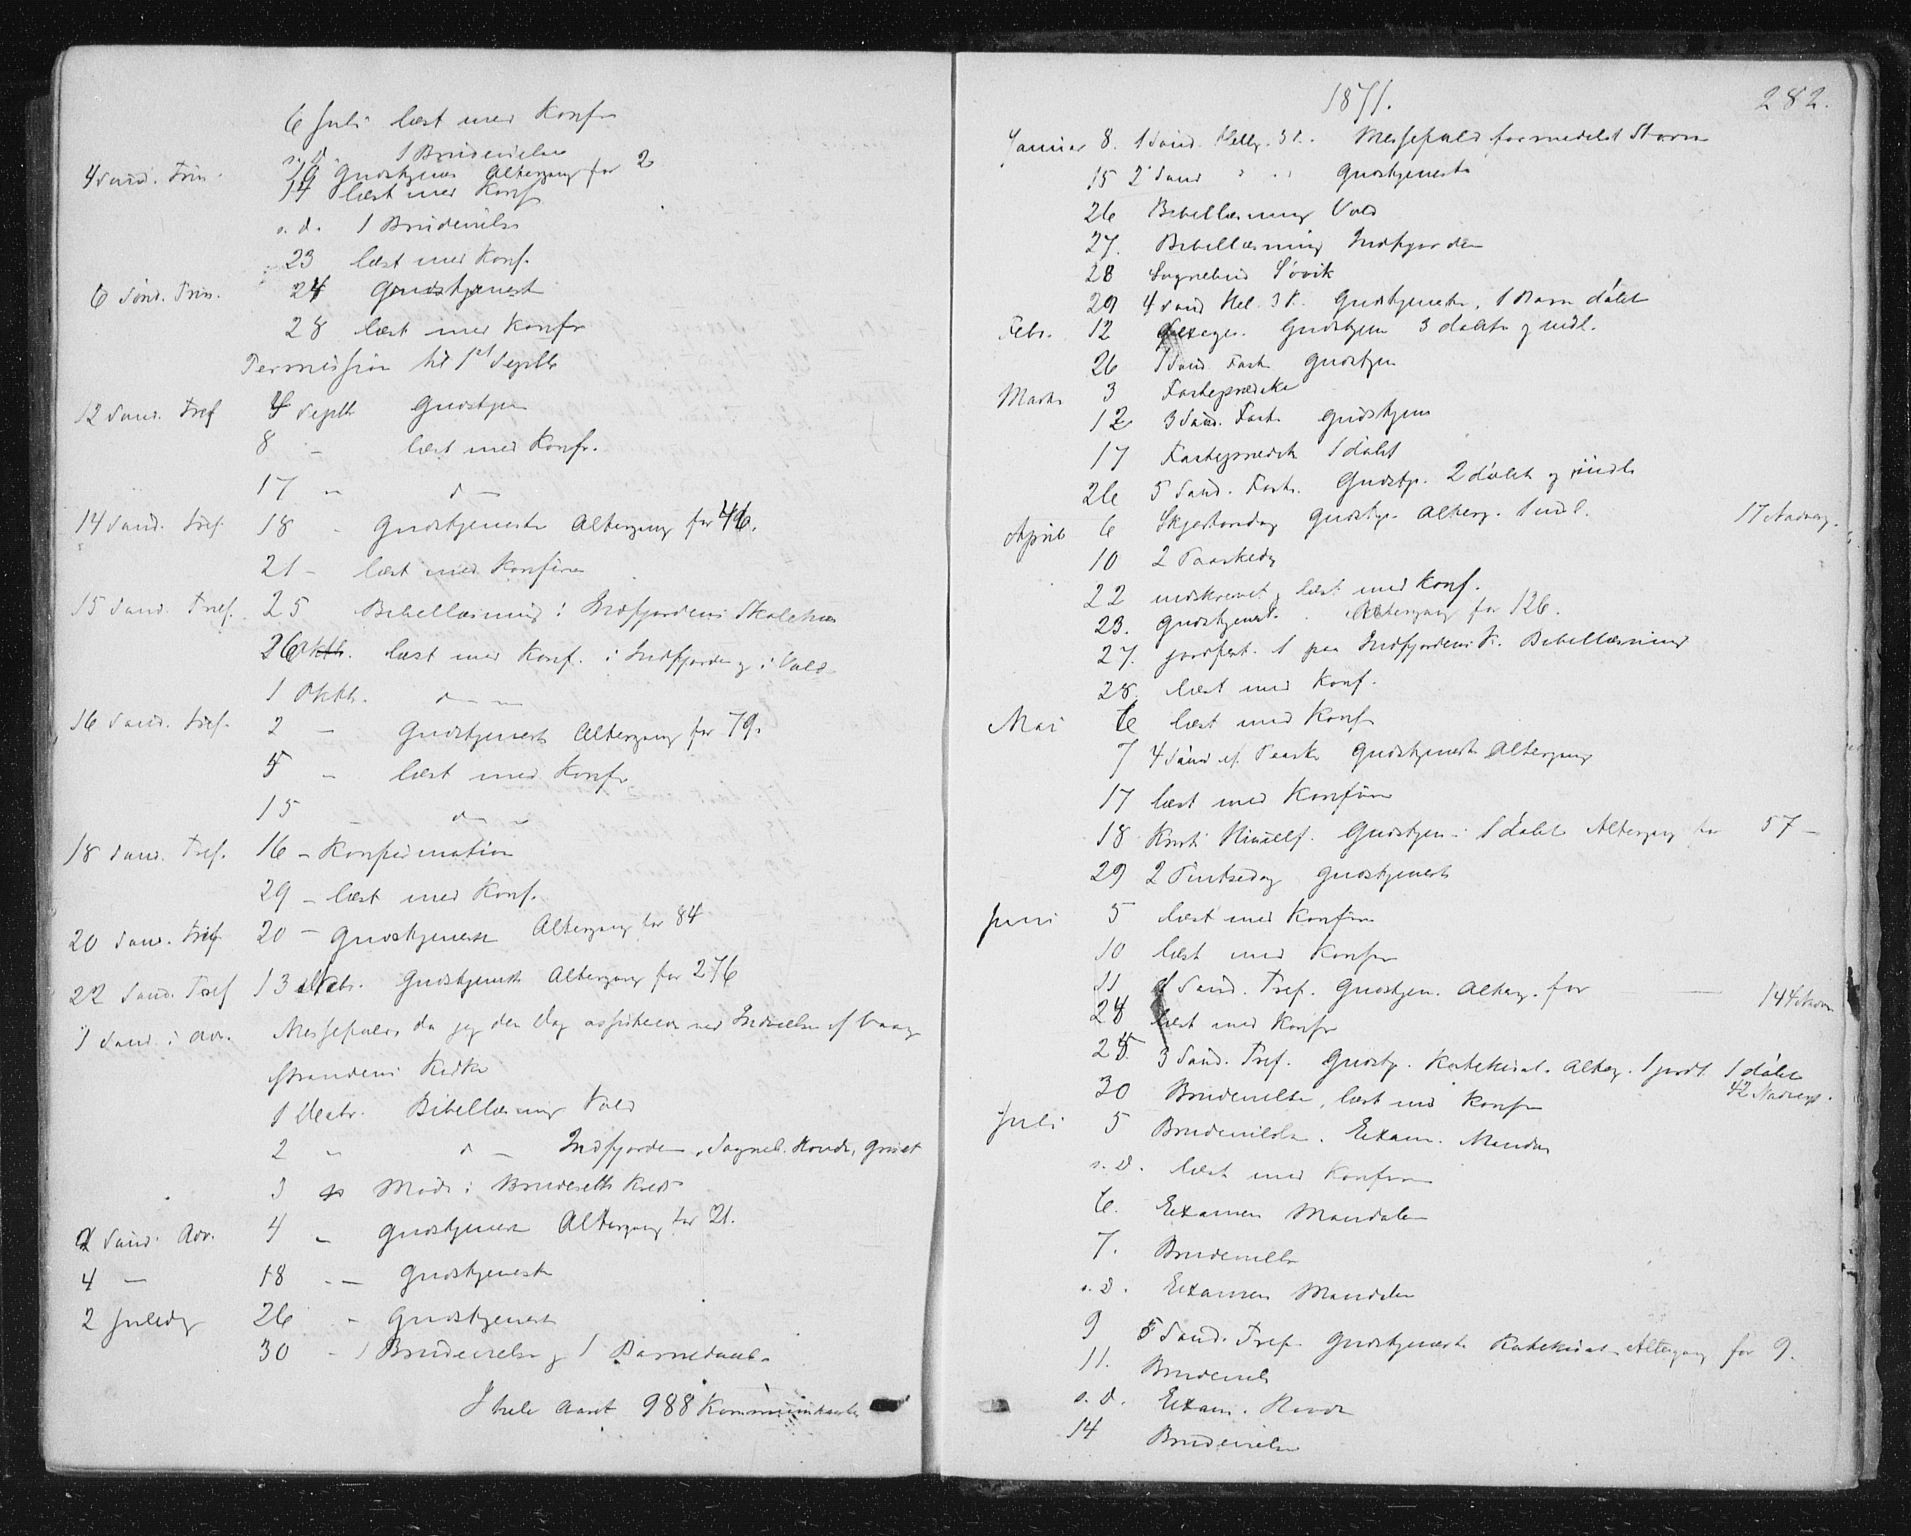 6 Juli læst med Konf
s. d. 1 Brudevielse
4 Sønd. Trin. 10 Gudstjenes Altergang for 2
14 læst med Konf
s. d. 1 Brudevielse
23 læst med Konf.
6 Sønd. Trin. 24 Gudstjenest
28 læst med Konfr
Permission til 1st Septb
12 Sønd. Tref 4 Septb Gudstjen
8 - læst med Konfr.
17 - d -
14 Sønd. Tref. 18 - Gudstjeneste Altergang for 46.
21 - læst med Konfirm
15 Sønd. Tref. 25 Bibellæsning i Indfjordens Skolehus
26 læst med Konf. i Indfjorden og i Vold
1 Oktb. d -
16 Sønd. Tref. 2 - Gudstjeneste Altergang for 79.
5 - læst med Konfr
15 - d -
18 Sønd. Tref. 16 - Konfirmation
29 - læst med Konf.
20 Sønd. Tref 20 - Gudstjeneste Altergang for 84
22 Sønd. Tref 13 Gudstjeneste Altergang for 276
1 Sønd. i Adv. Messefald, da jeg den Dag assisterer ved Indvielse af Vaage
strandens Kirke
1 Decbr. Bibellæsning Vold
2 " d - Indfjorden, Sogneb. Hovde, Grøvet
3 Møde i Bruderetts Kreds
2 Sønd. Adv. 4 - Gudstjenest Altergang for 21.
4 - 18 - Gudstjeneste
2 Juledag 26 - Gudstjenest
30 - 1 Brudevielse og 1 Barnedaab.
I hele Aaret 988 Kommunikanter
282.
1871.
Januar 8. 1 Sønd. Helly. 3 K. Messefald formedelst Storm
15 2 Sønd " " Gudstjeneste
26 Bibellæsning Vold
27. Bibellæsning Indfjorden
28 Sognebud Søvik
29 4 Sønd Hel. 3 K. Gudstjeneste, 1 Barn døbt
Febr. 12 Gudstjen 3 døbte og indl.
26 1 Sønd. Fast. Gudstjen
Marts 3 Fasteprædike
12 3 Sønd. Fast. Gudstjens
17 Fasteprædik 1 døbt
26 5 Sønd. Fast. Gudstj. 2 døbt og indl
April 6 Skjertorsdag Gudstj. Alterg. 1 indl. 17 Nadverg.
10 2 Paaskedag
22 indskrevet og læst med Konf.
23. Gudstjenest. Altergang for 126.
27. jordfæst. 1 paa Indfjordens K. Bibellæsning
28. læst med Konf.
Mai 6 læst med Konf
7 4 Sønd ef. Paask Gudstjenest Altergang
17 læst med Konfirm
18 Krist. Himelf. Gudstjen. 1 døbt Altergang for 57 -
29 2 Pintsedag Gudstjeneste
Juni 5 læst med Konfirm
10 læst med Konfr
11 1 Sønd. Tref. Gudstjen. Alterg. for 144
24 læst med Konfr
25 3 Sønd. Tref. Gudstj. Katekisat. Alterg. 1 jordf. 1 døbt
42 Nadverg.
30 Brudevielse, læst med Konfr
Juli 5 Brudevielse. Exam. Mandal
s. d. læst med Konfirm
6. Examen Mandalen
7. Brudevielse
s. d. Examen Mandalen
9 5 Sønd. Tref. Gudstjeneste Katekisat. Altergang for 9.
11. Brudeviels
s. d. Exam. Hovde
14 Brudevielse